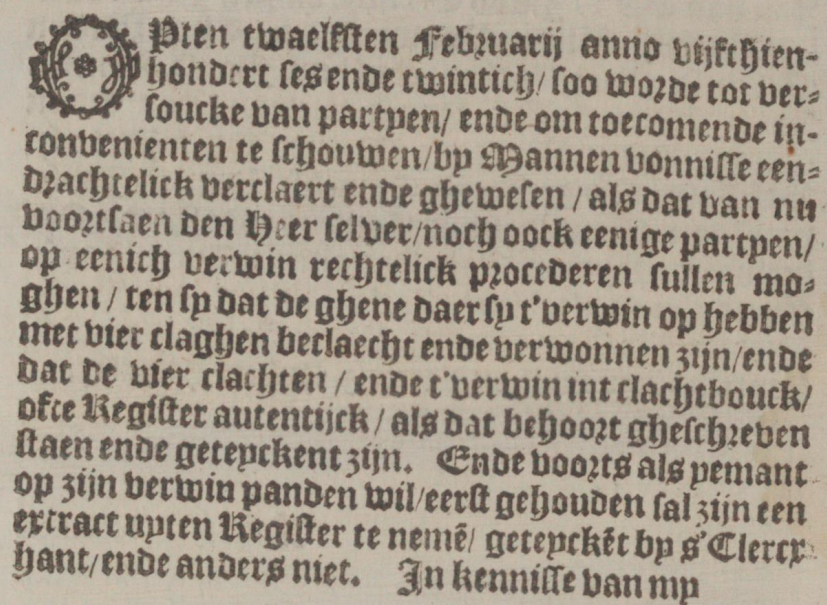 OPten twaelfsten Februarij anno vijfthien-
hondert ses ende twintich/ soo worde tot ver-
soucke van partyen/ ende om toecomende in-
convenienten te schouwen/by Mannen vonnisse een-
drachtelick verclaert ende ghewesen / als dat van nu
voortsaen den Heer selver/noch oock eenige partyen/
op eenich verwin rechtelick procederen sullen mo-
ghen / ten sy dat de ghene daer sy t'verwin op hebben
met vier claghen beclaecht ende verwonnen zijn/ende
dat de vier clachten / ende t'verwin int clachtbouck/
ofte Register autentijck / als dat behoort gheschreven
staen ende geteyckent zijn. Ende voorts als yemant
op zijn verwin panden wil/eerst gehouden sal zijn een
extract upten Register te nemē/ geteyckēt by s'Clercx
hant/ende anders niet. In kennisse van my